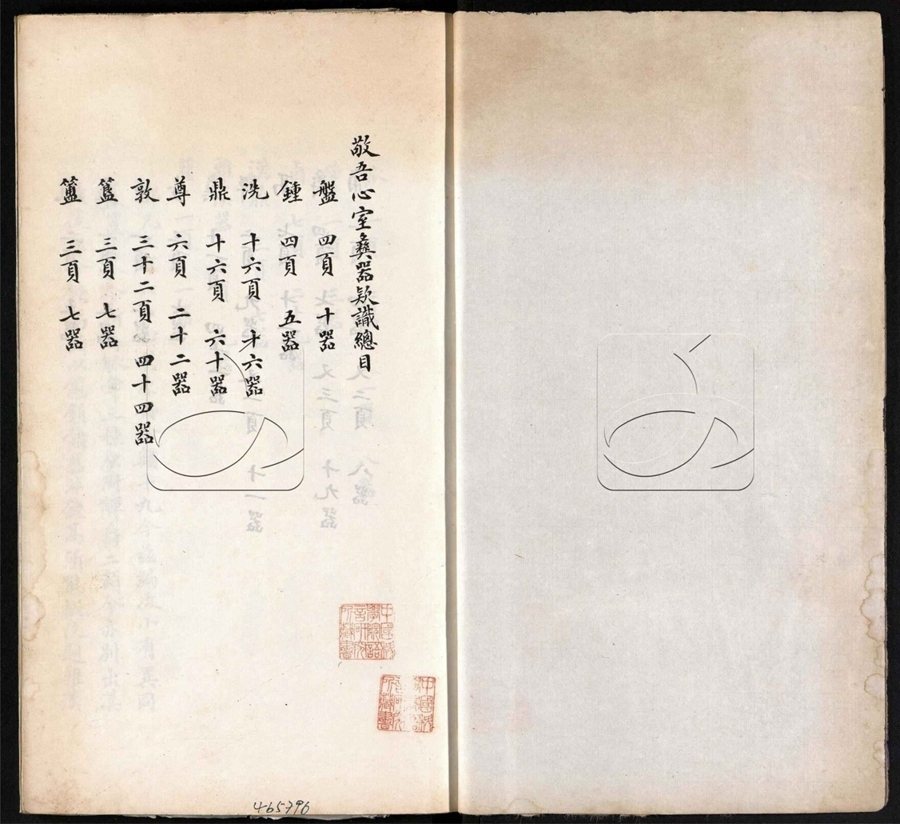 敬吾心室彝器款識總目
盤 四頁 十器
鍾 四頁 十五器
洗 十六頁 十六器
鼎 十六頁 六十器
尊 六頁 二十二器
敦 三十二頁 四十四器
簠 三頁 七器
簠 三頁 七器
465796